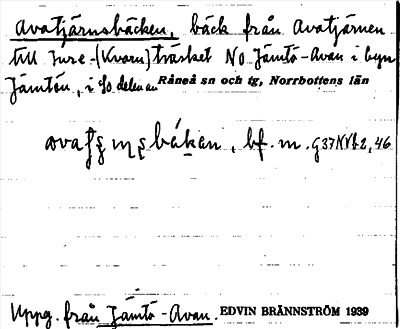 Avatjärnsbäcken, bäck från Avatjärnen
till Inre-(Kvarn)träsket NO Jämtö-Avan i byn
Jämtön, i SO delen av Råneå sn och tg, Norrbottens län
bf. m. G37NVf2, 46
Uppg. från Jämtö-Avan. EDVIN BRÄNNSTRÖM 1939